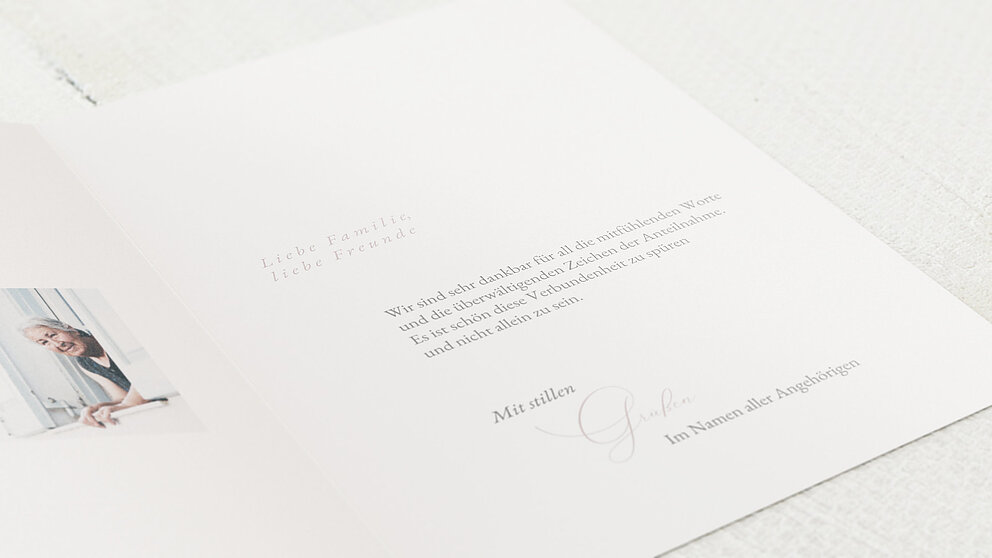 Liebe Familie,
liebe Freunde
Wir sind sehr dankbar für all die mitfühlenden Worte
und die überwältigenden Zeichen der Anteilnahme.
Es ist schön diese Verbundenheit zu spüren
und nicht allein zu sein.
Mit stillen
Grußen
Im Namen aller Angehörigen